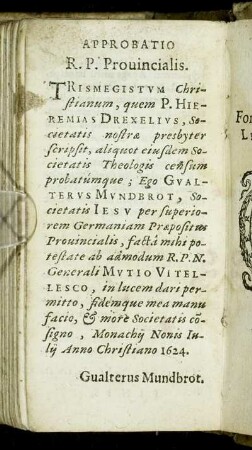 APPROBATIO
R. P. Prouincialis.
TRISMEGISTVM Chri-
stianum, quem P. HIE-
REMIAS DREXELIVS, So-
cietatis nostræ presbyter
scripsit, aliquot eiusdem So-
cietatis Theologis censum
probatumque; Ego GVAL-
TERVS MVNDBROT, So-
cietatis IESV per superio-
rem Germaniam Præpositus
Prouincialis, factâ mihi po-
testate ab admodum R.P.N.
Generali MVTIO VITEL-
LESCO, in lucem dari per-
mitto, fidemque mea manu
facio, & more Societatis cō-
signo, Monachij Nonis Iu-
lij Anno Christiano 1624.
Gualterus Mundbrot.